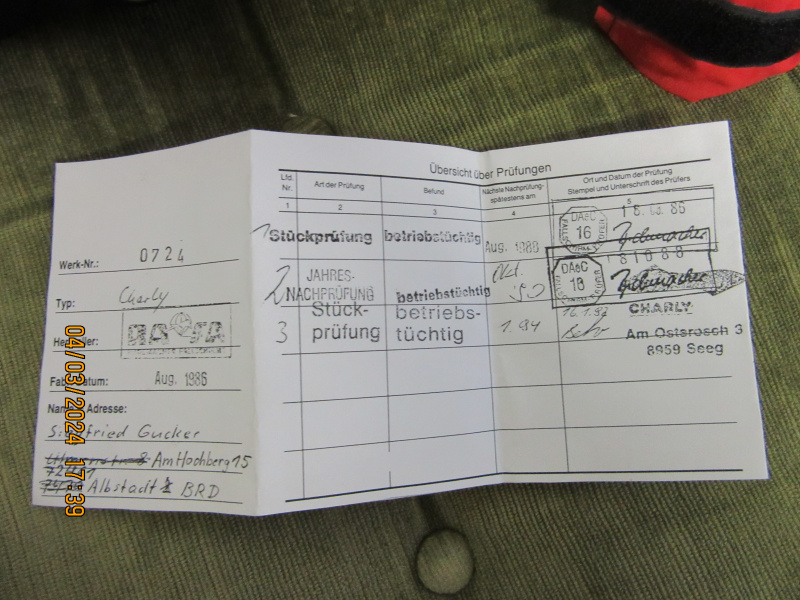 Werk-Nr.: 0724
Typ: Charly
Fab
datum: Aug. 1986
Adresse:
Siegfried Gucker
Am Hochberg 15
Albstadt 1 BRD
Übersicht über Prüfungen
Lfd. Nr.
Art der Prüfung
Befund
Nächste Nachprüfung spätestens am
Ort und Datum der Prüfung
Stempel und Unterschrift des Prüfers
1 2 3 4 5
1 Stückprüfung betriebstüchtig Aug. 1988
DAeC
16
18. 08. 86
2 JAHRES-
NACHPRÜFUNG betriebstüchtig Okt. 90
DAeC
16
3 Stück-
prüfung
betriebs-
tüchtig
1.94
16.1.92
CHARLY
Am Osterösch 3
8959 Seeg
04/03/2024 17:39